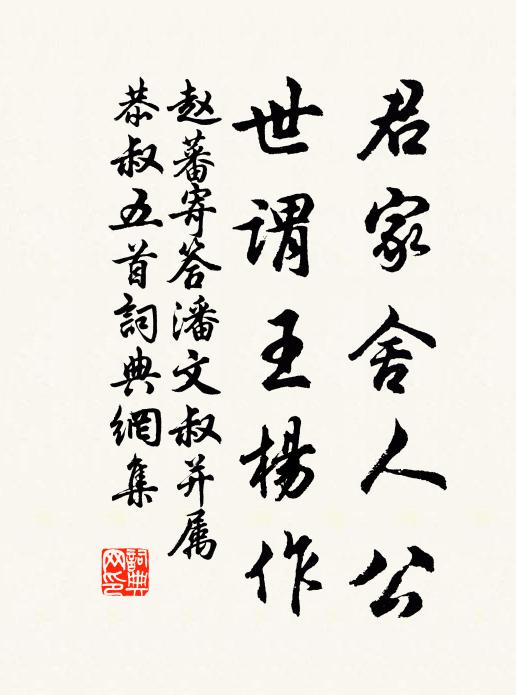 君家舍人公
世谓王楊作
赵蕃寄答潘文叔并属
恭叔五首詞典網集
詞典网印